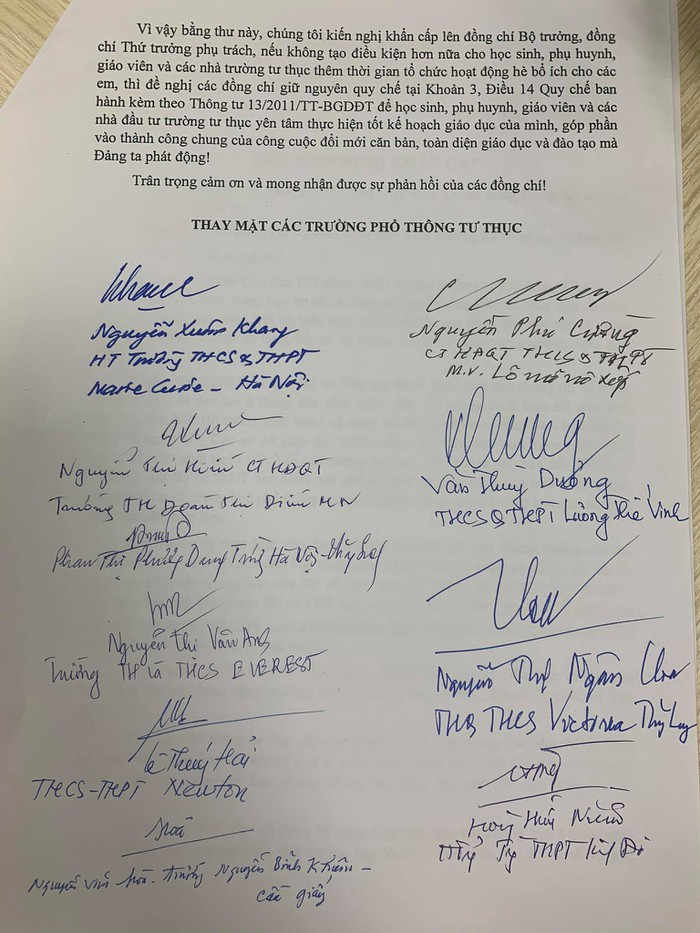 Vì vậy bằng thư này, chúng tôi kiến nghị khẩn cấp lên đồng chí Bộ trưởng, đồng
chí Thứ trưởng phụ trách, nếu không tạo điều kiện hơn nữa cho học sinh, phụ huynh,
giáo viên và các nhà trường tư thục thêm thời gian tổ chức hoạt động hè bổ ích cho các
em, thì đề nghị các đồng chí giữ nguyên quy chế tại Khoản 3, Điều 14 Quy chế ban
hành kèm theo Thông tư 13/2011/TT-BGDĐT để học sinh, phụ huynh, giáo viên và các
nhà đầu tư trường tư thục yên tâm thực hiện tốt kế hoạch giáo dục của mình, góp phần
vào thành công chung của công cuộc đổi mới căn bản, toàn diện giáo dục và đào tạo mà
Đảng ta phát động!
Trân trọng cảm ơn và mong nhận được sự phản hồi của các đồng chí!
THAY MẶT CÁC TRƯỜNG PHỔ THÔNG TƯ THỤC
Nguyễn Xuân Khang
HT Trường THCS & THPT
Marie Curie - Hà Nội
Nguyễn Phú Cường
CT HĐQT THCS & THPT
M.V. Lômônôxốp
Nguyễn Thị Hiền CT HĐQT
Trường TH Đoàn Thị Điểm HN
Văn Thùy Dương
THCS & THPT Lương Thế Vinh
Phan Thị Phương Dung Trường Hà Nội -
Nguyễn Thị Vân Anh
Trường TH và THCS EVEREST
Nguyễn Thị Ngân Hoa
TH & THCS Victoria Thăng Long
Lê Thúy Hải
THCS-THPT Newton
THPT
Nguyễn Văn Hòa. trường Nguyễn Bỉnh Khiêm -
Cầu Giấy